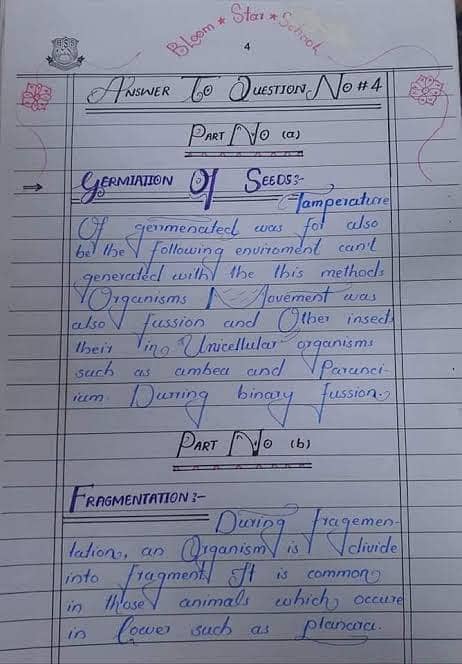 Bloom ★ Star ★ School
4
Answer To Question No #4
Part No (a)
⇒ Germiation Of Seeds:-
Tamperature
Of germenated was for also
be the following enviroment can't
generated with the this methods
Organisms Movement was
also fussion and Other insect
their in Unicellular organisms
such as ambea and Paranci-
ium. Durring binary fussion.
Part No (b)
Fragmentation:-
During fragemen-
tation, an Organism is divide
into fragment It is common
in those animals which occure
in lower such as planara.